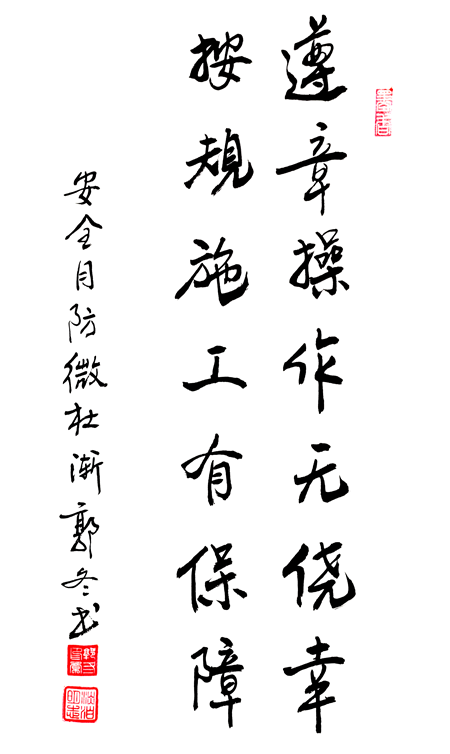 遵章操作无侥幸
按规施工有保障
安全月防微杜渐郭冬书